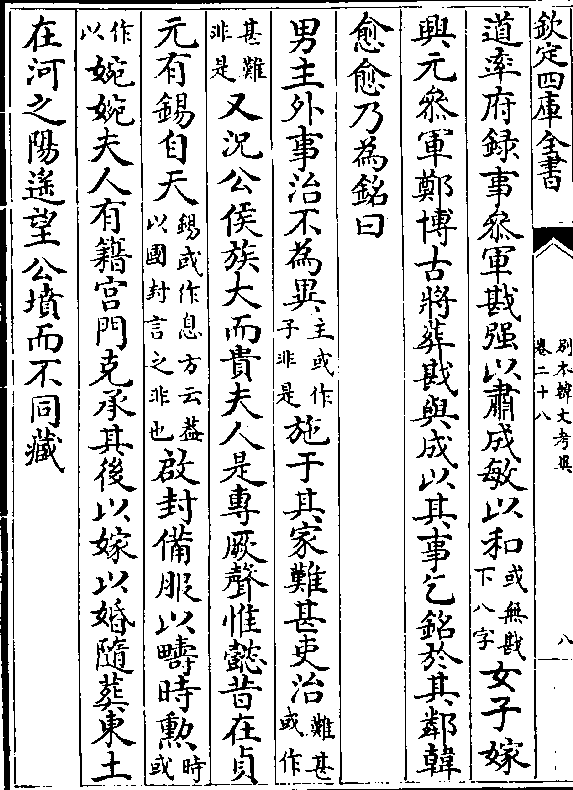 欽定四庫全書
別本韓文考異
卷二十八
八
道率府錄事叅軍戡强以肅成敏以和或無戡下八字女子嫁
興元叅軍鄭博古將葬戡與成以其事乞銘於其鄰韓
愈愈乃為銘曰
男主外事治不為異主或作子非是施于其家難甚吏治難甚或作
甚難非是又況公侯族大而貴夫人是專厥聲惟懿昔在貞
元有錫自天錫或作息方云葢以國封言之非也啟封備服以疇時勲時或
作以婉婉夫人有籍宫門克承其後以嫁以婚隨葬東土
在河之陽遙望公墳而不同藏